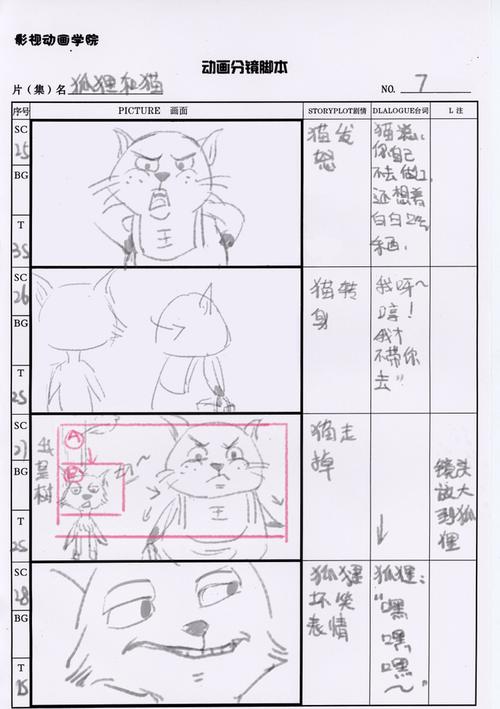 影视动画学院
动画分镜脚本
片（集）名 狐狸和猫
NO. 7
序号
PICTURE 画面
STORYPLOT剧情
DLALOGUE台词
L 注
SC
25
BG
T
3S
王
猫发
怒
猫说:
你自己
不去做工
还想着
白白
东西,
SC
26
BG
T
2S
猫转
身
我呀~
哼!
我才
不带你
去"
SC
27
BG
T
2S
树
A
B
切~
王
猫走
掉
镜头
放大
到狐
狸
SC
28
BG
T
狐狸
坏笑
表情
狐狸:
"嘿
嘿
嘿~